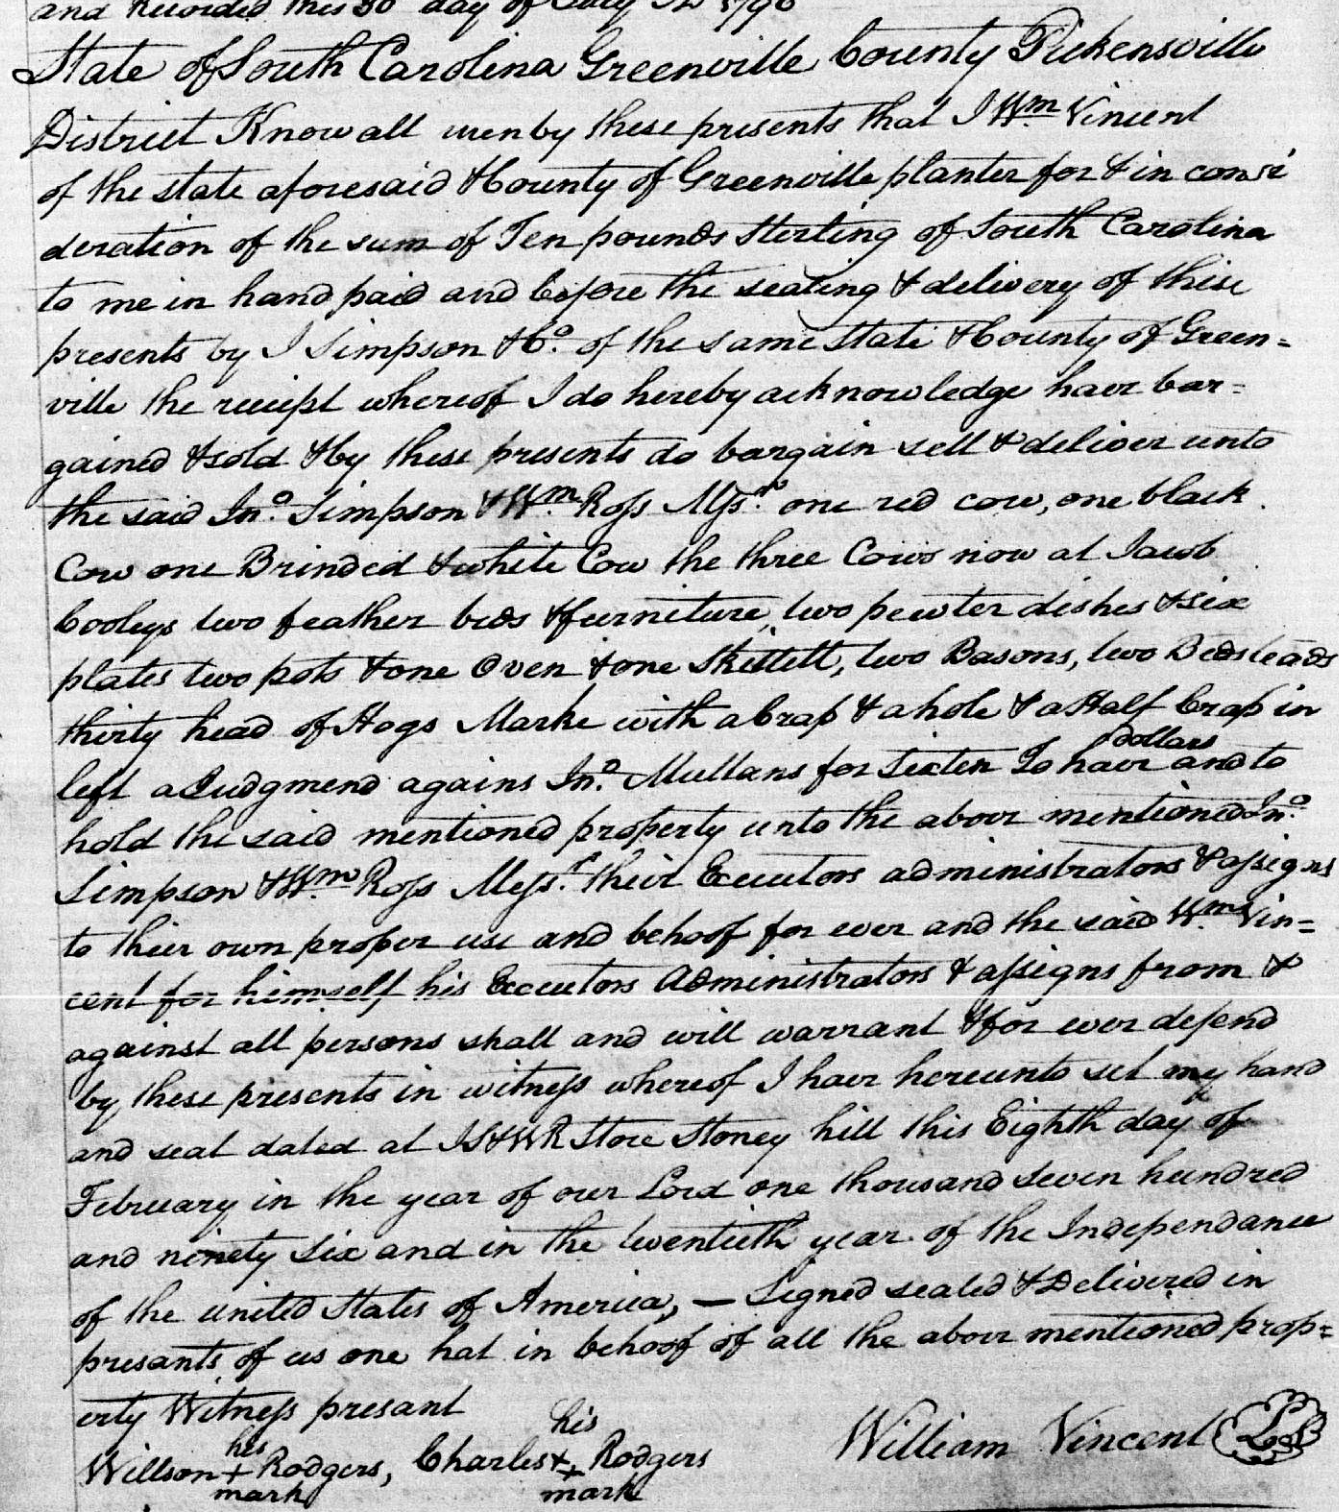 and Recorded this 30 day of July 1796
State of South Carolina Greenville County Pickensville
District Know all men by these presents that I Wm. Vincent
of the state aforesaid & County of Greenville planter for & in consi
deration of the sum of Ten pounds Sterling of South Carolina
to me in hand paid and before the sealing & delivery of these
presents by J Simpson & Co. of the same State & County of Green=
ville the receipt whereof I do hereby acknowledge have bar=
gained & sold & by these presents do bargain sell & deliver unto
the said Jno. Simpson & Wm. Ross Mssrs. one red cow, one black
Cow one Brinded & white Cow the three Cows now at Jacob
Cooleys two feather beds & furniture, two pewter dishes & six
plates two pots & one Oven & one Skillett, two Basons, two Bedsteads
thirty head of Hogs Marke with a Crap & a hole & a Half Crap in
left a Judgmend agains Jno. Mullans for Sixten dollars To have and to
hold the said mentioned property unto the above mentioned Jno.
Simpson & Wm. Ross Messrs. their Executors administrators & assigns
to their own proper use and behoof for ever and the said Wm. Vin=
cent for himself his Executors Administrators & assigns from &
against all persons shall and will warrant & for ever defend
by these presents in witness whereof I have hereunto set my hand
and seal dated at JS & WR Store Stoney hill this Eighth day of
February in the year of our Lord one thousand seven hundred
and ninety six and in the twentieth year of the Independance
of the united States of America, — Signed sealed & Delivered in
presants of us one hat in behoof of all the above mentioned prop=
erty Witness presant
Willson his + mark Rodgers, Charles his + mark Rodgers William Vincent LS